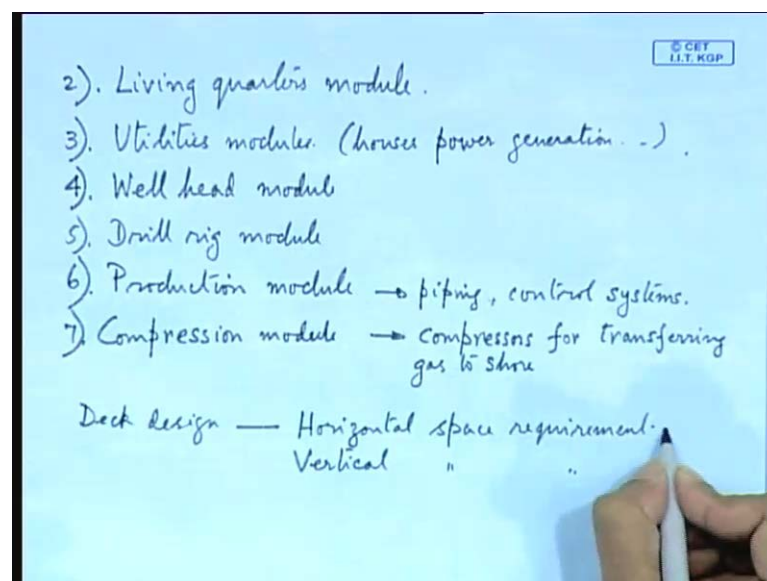 © CET
I.I.T. KGP
2). Living quarters module.
3). Utilities modules. (houses power generation...).
4). Well head module
5). Drill rig module
6). Production module → piping, control systems.
7). Compression module → compressors for transferring
gas to shore
Deck design — Horizontal space requirement.
Vertical " "